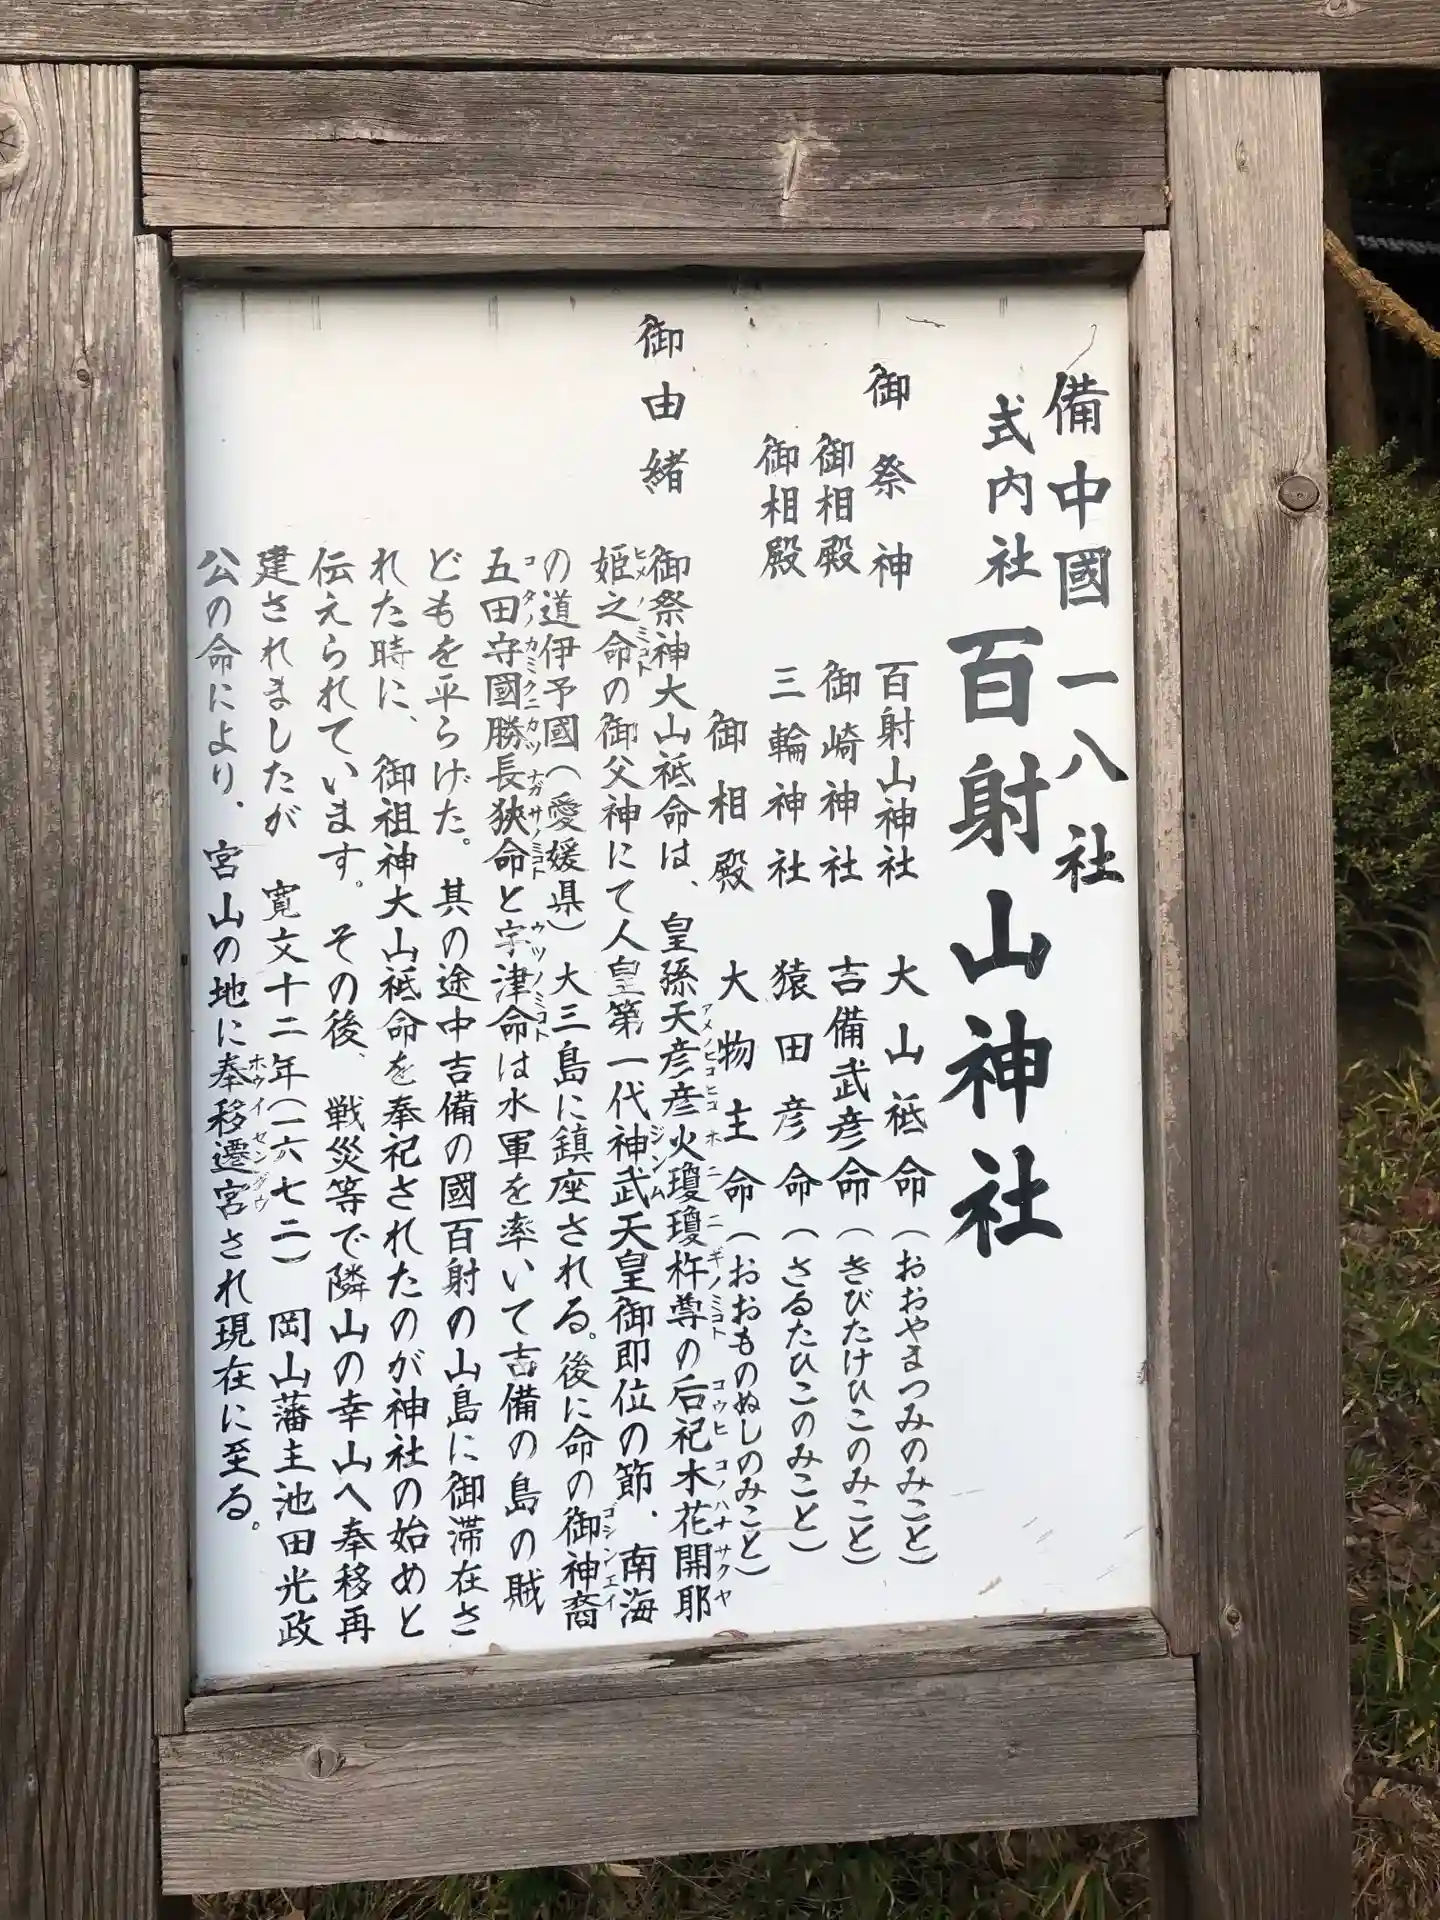 備中國一八社
式内社 百射山神社
御祭神 百射山神社 大山祗命(おおやまつみのみこと)
御相殿 御崎神社 吉備武彦命(きびたけひこのみこと)
御相殿 三輪神社 猿田彦命(さるたひこのみこと)
御相殿 大物主命(おおものぬしのみこと)
御由緒
御祭神大山祗命は、皇孫天彦彦火瓊瓊杵尊の后祀木花開耶
アメノヒコヒコ ホ ニ ニ ギ ノ ミコト コウヒ コノハナサクヤ
姫之命の御父神にて人皇第一代神武天皇御即位の節、南海
ヒメノミコト ジンム
の道伊予國(愛媛県)大三島に鎮座される。後に命の御神裔
ゴシンエイ
五田守國勝長狹命と宇津命は水軍を率いて吉備の島の賊
コタノカミクニカツナガサノミコト ウツノミコト
どもを平らげた。其の途中吉備の國百射の山島に御滞在さ
れた時に、御祖神大山祗命を奉祀されたのが神社の始めと
伝えられています。その後、戦災等で隣山の幸山へ奉移再
建されましたが 寛文十二年(一六七二)岡山藩主池田光政
公の命により、宮山の地に奉移遷宮され現在に至る。
ホウイセングウ